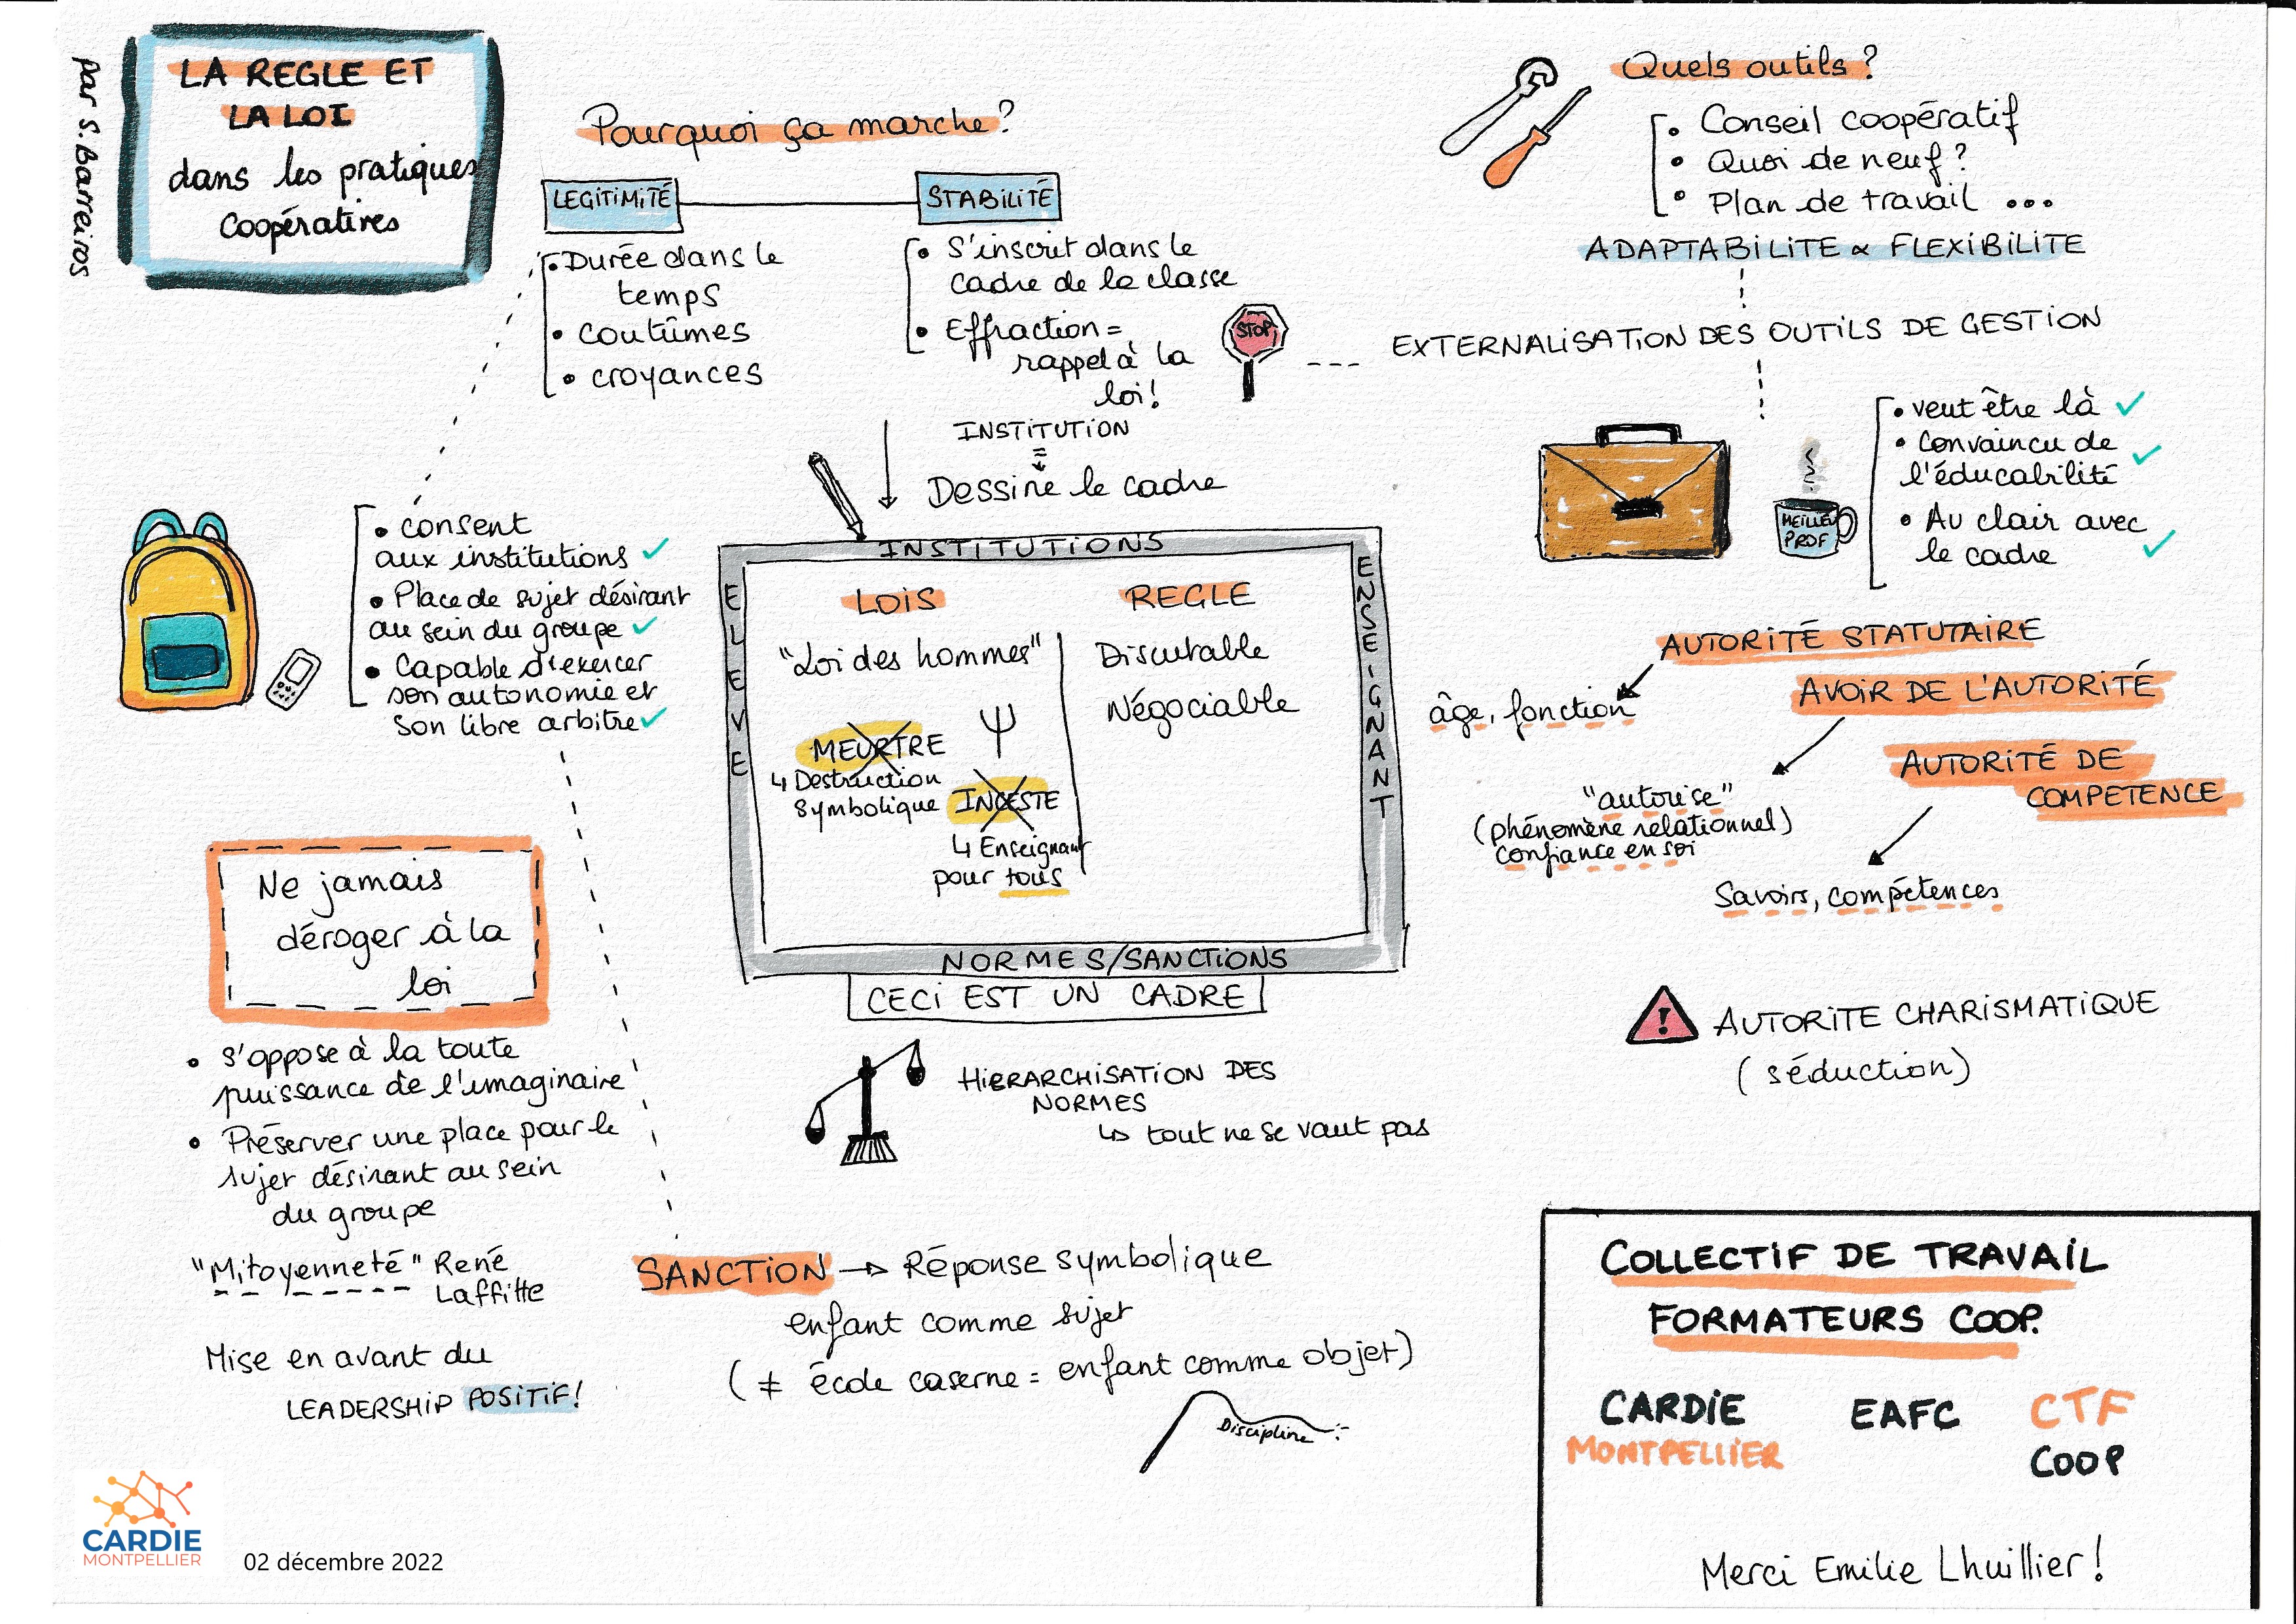 par S. Barreiros
LA REGLE ET
LA LOI
dans les pratiques
coopératives
Pourquoi ça marche?
LEGITIMITÉ
• Durée dans le
temps
• coutûmes
• croyances
STABILITÉ
• S'inscrit dans le
cadre de la classe
• Effraction =
rappel à la
loi!
STOP
INSTITUTION
=
Dessine le cadre
Quels outils?
• Conseil coopératif
• Quoi de neuf?
• Plan de travail ...
ADAPTABILITE & FLEXIBILITE
EXTERNALISATION DES OUTILS DE GESTION
• veut être là ✓
• Convaincu de
l'éducabilité ✓
• Au clair avec
le cadre ✓
MEILLEU
PROF
• consent
aux institutions ✓
• Place de sujet désirant
au sein du groupe ✓
• Capable d'exercer
son autonomie et
son libre arbitre ✓
INSTITUTIONS
ELEVE
ENSEIGNANT
LOIS
"Loi des hommes"
MEURTRE
Ψ
↳ Destruction
symbolique
INCESTE
↳ Enseignant
pour tous
REGLE
Discutable
Négociable
NORMES/SANCTIONS
CECI EST UN CADRE
HIERARCHISATION DES
NORMES
↳ tout ne se vaut pas
AUTORITÉ STATUTAIRE
âge, fonction
AVOIR DE L'AUTORITÉ
"autorise"
(phénomène relationnel)
confiance en soi
AUTORITÉ DE
COMPETENCE
Savoirs, compétences
! AUTORITE CHARISMATIQUE
(séduction)
Ne jamais
déroger à la
loi
• s'oppose à la toute
puissance de l'imaginaire
• Préserver une place pour le
sujet désirant au sein
du groupe
"Mitoyenneté" René
Laffitte
Mise en avant du
LEADERSHIP POSITIF!
SANCTION → Réponse symbolique
enfant comme sujet
(≠ école caserne = enfant comme objet)
Discipline
COLLECTIF DE TRAVAIL
FORMATEURS COOP.
CARDIE
MONTPELLIER
EAFC
CTF
COOP
Merci Emilie Lhuillier!
CARDIE
MONTPELLIER
02 décembre 2022